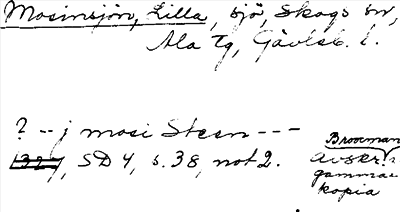 Mosinsjön, Lilla, sjö, Skogs sn,
Ala tg, Gävleb. l.
? -- j mosi Steen ---
1327, SD 4, s. 38, not 2.
Brocman
avskr. i
gammal
kopia